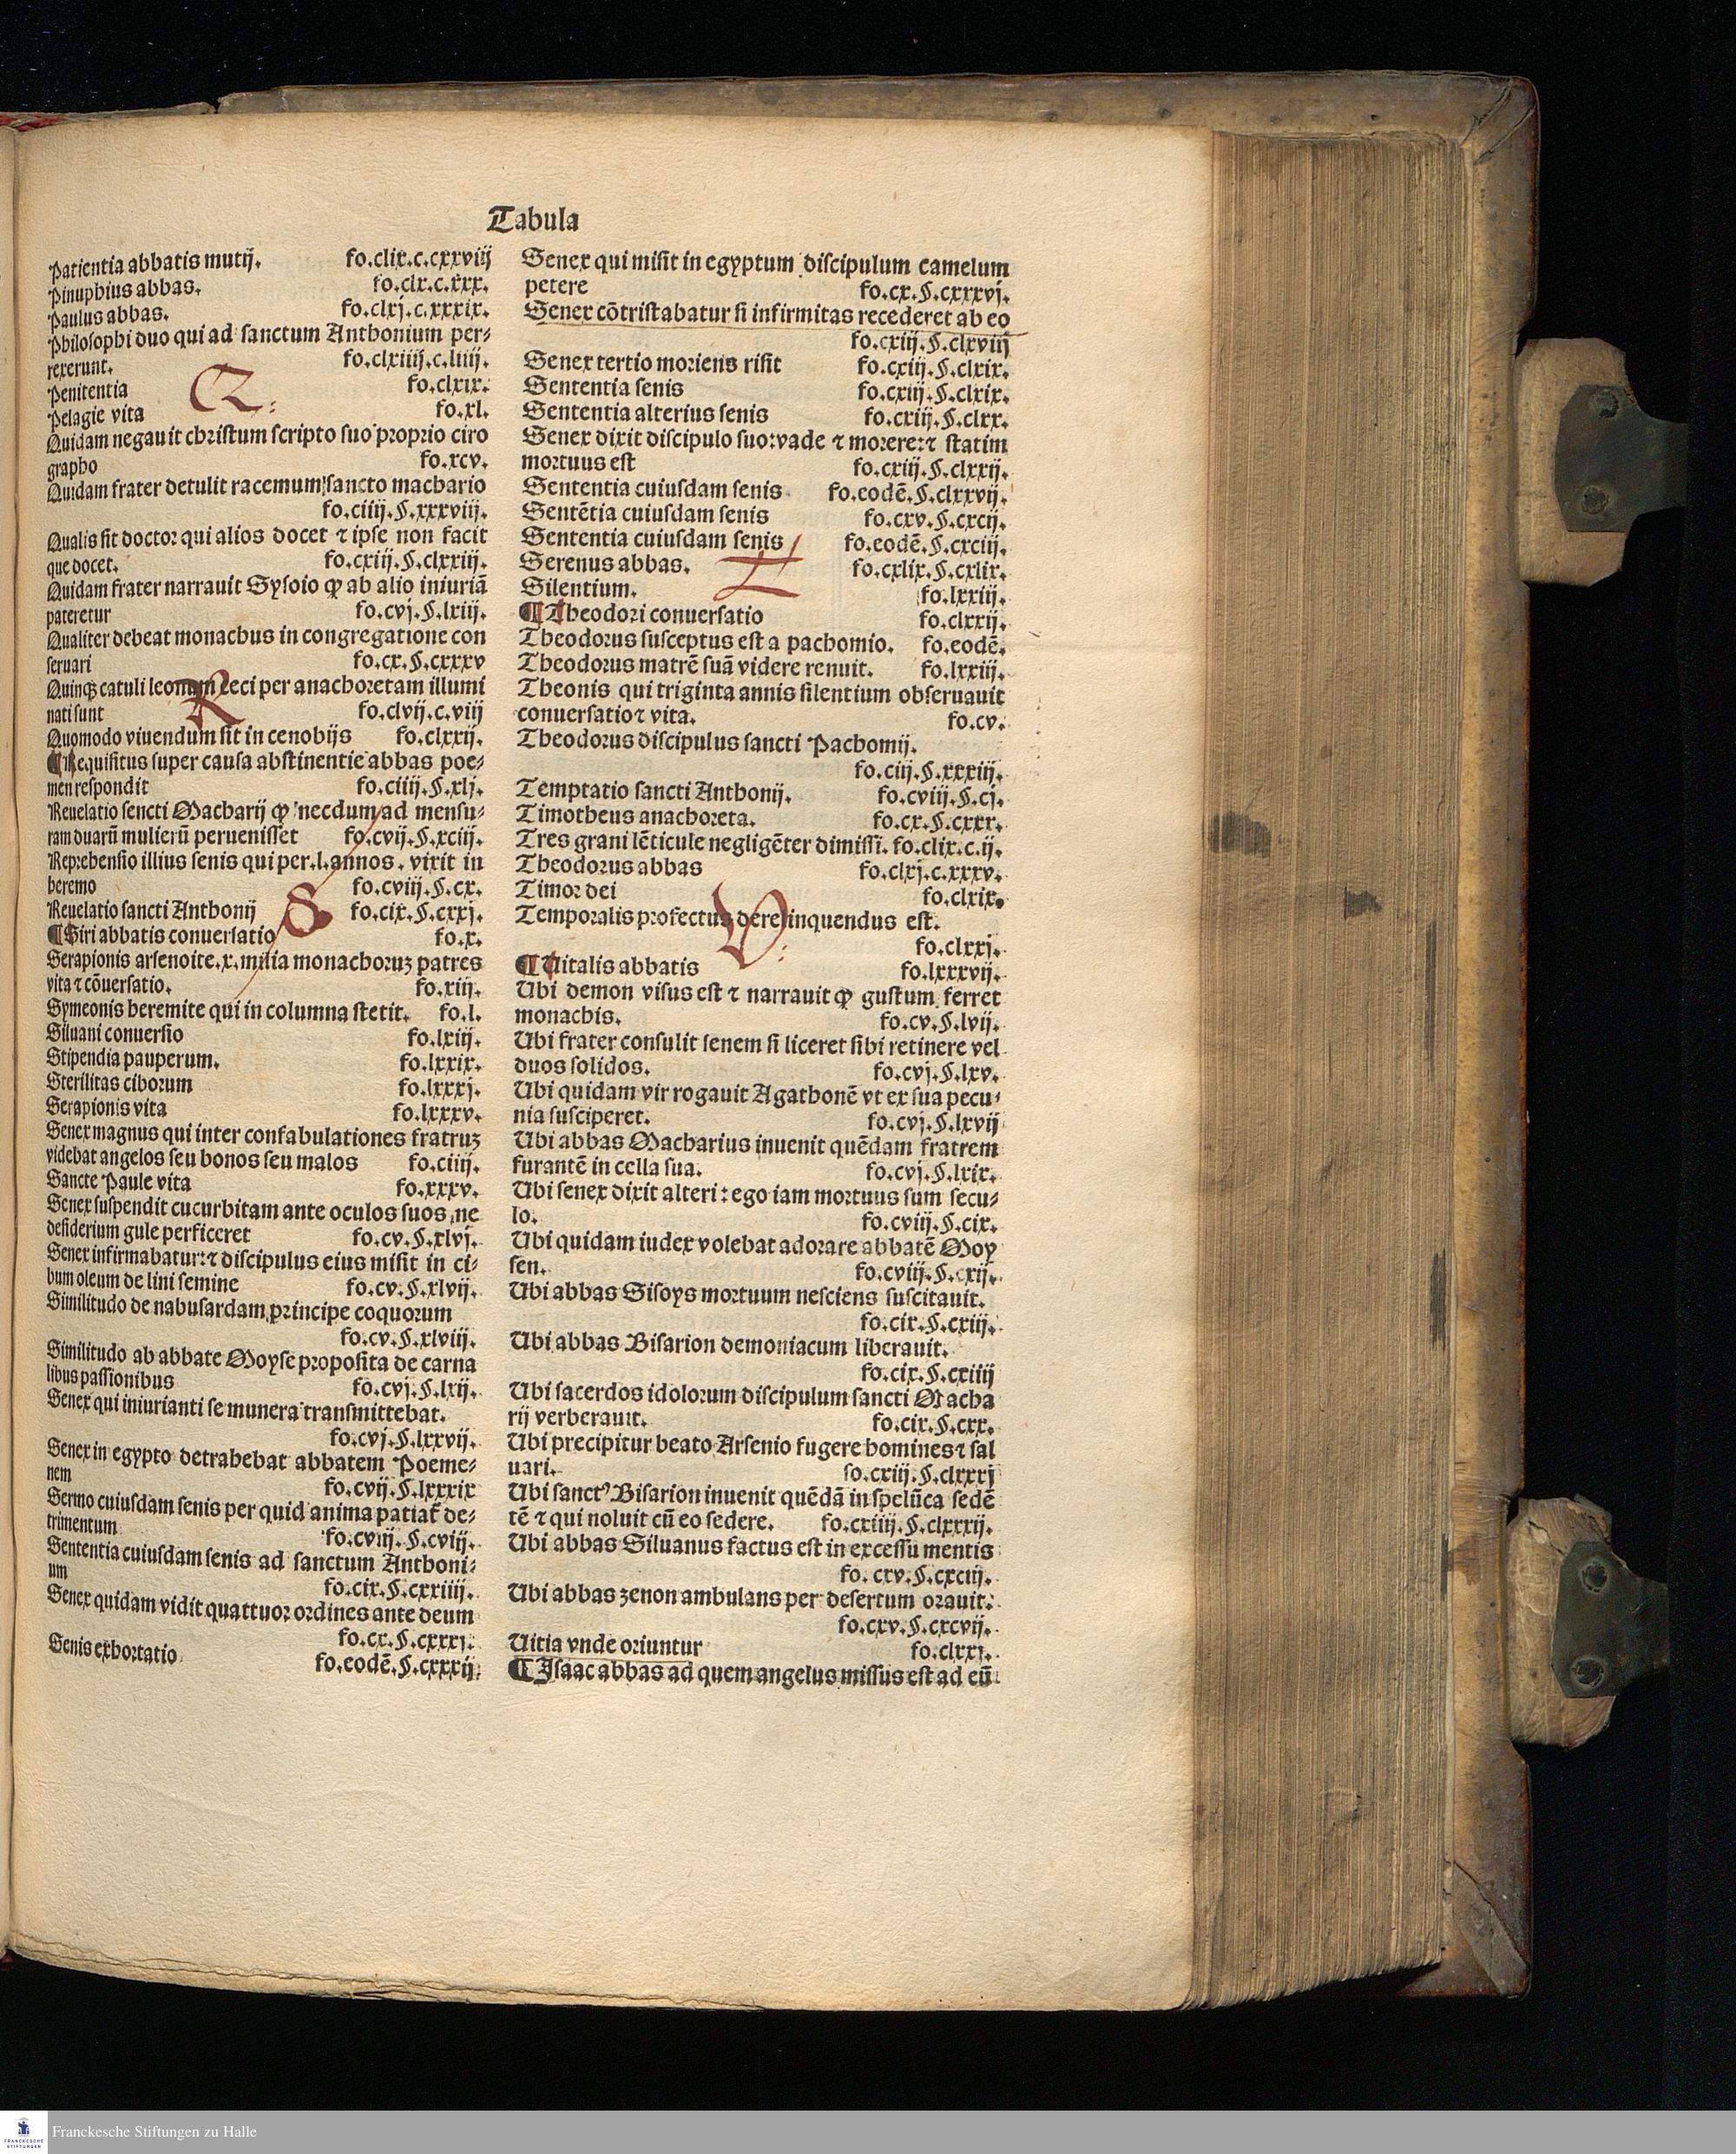 Tabula
Patientia abbatis mutij. fo.clix.c.cxxviij
Pinuphius abbas. fo.clx.c.xxx.
Paulus abbas. fo.clxj.c.xxxix.
Philosophi duo qui ad sanctum Anthonium per⸗
rexerunt. fo.clxiiij.c.liiij.
Penitentia fo.clxix.
Pelagie vita fo.xl.
Q.
Quidam negauit christum scripto suo proprio ciro
grapho fo.xcv.
Quidam frater detulit racemum sancto machario
fo.ciiij.§.xxxviij.
Qualis sit doctor qui alios docet ⁊ ipse non facit
que docet. fo.cxiij.§.clxxiij.
Quidam frater narrauit Sysoio ꝙ ab alio iniuriā
pateretur fo.cvj.§.lxiij.
Qualiter debeat monachus in congregatione con
seruari fo.cx.§.cxxxv
Quinqꝫ catuli leonum ceci per anachoretam illumi
nati sunt fo.clvij.c.viij
Quomodo viuendum sit in cenobijs fo.clxxij.
R
¶Requisitus super causa abstinentie abbas poe⸗
men respondit fo.ciiij.§.xlj.
Reuelatio sencti Macharij ꝙ necdum ad mensu⸗
ram duarū mulierū peruenisset fo.cvij.§.xciij.
Reprehensio illius senis qui per.l.annos. vixit in
heremo fo.cviij.§.cx.
Reuelatio sancti Anthonij fo.cix.§.cxxj.
S
¶Siri abbatis conuersatio fo.x.
Serapionis arsenoite.x.milia monachoruꝫ patres
vita ⁊ cōuersatio. fo.xiij.
Symeonis heremite qui in columna stetit. fo.l.
Siluani conuersio fo.lxiij.
Stipendia pauperum. fo.lxxix.
Sterilitas ciborum fo.lxxxj.
Serapionis vita fo.lxxxv.
Senex magnus qui inter confabulationes fratruꝫ
videbat angelos seu bonos seu malos fo.ciiij.
Sancte Paule vita fo.xxxv.
Senex suspendit cucurbitam ante oculos suos ne
desiderium gule perficeret fo.cv.§.xlvj.
Senex infirmabatur:⁊ discipulus eius misit in ci⸗
bum oleum de lini semine fo.cv.§.xlvij.
Similitudo de nabusardam principe coquorum
fo.cv.§.xlviij.
Similitudo ab abbate Moyse proposita de carna
libus passionibus fo.cvj.§.lxij.
Senex qui iniurianti se munera transmittebat.
fo.cvj.§.lxxvij.
Senex in egypto detrahebat abbatem Poeme⸗
nem fo.cvij.§.lxxxix
Sermo cuiusdam senis per quid anima patiat̃ de⸗
trimentum fo.cviij.§.cviij.
Sententia cuiusdam senis ad sanctum Anthoni⸗
um fo.cix.§.cxxiiij.
Senex quidam vidit quattuor ordines ante deum
fo.cx.§.cxxxj.
Senis exhortatio fo.eodē.§.cxxxij.
Senex qui misit in egyptum discipulum camelum
petere fo.cx.§.cxxxvj.
Senex cōtristabatur si infirmitas recederet ab eo
fo.cxiij.§.clxviij
Senex tertio moriens risit fo.cxiij.§.clxix.
Sententia senis fo.cxiij.§.clxix.
Sententia alterius senis fo.cxiij.§.clxx.
Senex dixit discipulo suo:vade ⁊ morere:⁊ statim
mortuus est fo.cxiij.§.clxxij.
Sententia cuiusdam senis fo.eodē.§.clxxvij.
Sentētia cuiusdam senis fo.cxv.§.cxcij.
Sententia cuiusdam senis fo.eodē.§.cxciij.
Serenus abbas. fo.cxlix.§.cxlix.
Silentium. fo.lxxiij.
T
¶Theodori conuersatio fo.clxxij.
Theodorus susceptus est a pachomio. fo.eodē.
Theodorus matrē suā videre renuit. fo.lxxiij.
Theonis qui triginta annis silentium obseruauit
conuersatio⁊ vita. fo.cv.
Theodorus discipulus sancti Pachomij.
fo.ciij.§.xxxiij.
Temptatio sancti Anthonij. fo.cviij.§.cj.
Timotheus anachoreta. fo.cx.§.cxxx.
Tres grani lēticule negligēter dimissi. fo.clix.c.ij.
Theodorus abbas fo.clxj.c.xxxv.
Timor dei fo.clxix.
Temporalis profectus derelinquendus est.
fo.clxxj.
V.
¶Uitalis abbatis fo.lxxxvij.
Ubi demon visus est ⁊ narrauit ꝙ gustum ferret
monachis. fo.cv.§.lvij.
Ubi frater consulit senem si liceret sibi retinere vel
duos solidos. fo.cvj.§.lxv.
Ubi quidam vir rogauit Agathonē vt ex sua pecu⸗
nia susciperet. fo.cvj.§.lxvij
Ubi abbas Macharius inuenit quēdam fratrem
furantē in cella sua. fo.cvj.§.lxix.
Ubi senex dixit alteri: ego iam mortuus sum secu⸗
lo. fo.cviij.§.cix.
Ubi quidam iudex volebat adorare abbatē Moy
sen. fo.cviij.§.cxij.
Ubi abbas Sisoys mortuum nesciens suscitauit.
fo.cix.§.cxiij.
Ubi abbas Bisarion demoniacum liberauit.
fo.cix.§.cxiiij
Ubi sacerdos idolorum discipulum sancti Macha
rij verberauit. fo.cix.§.cxx.
Ubi precipitur beato Arsenio fugere homines⁊ sal
uari. fo.cxiij.§.clxxxj
Ubi sanctꝰ Bisarion inuenit quēdā in spelūca sedē
tē ⁊ qui noluit cū eo sedere. fo.cxiiij.§.clxxxij.
Ubi abbas Siluanus factus est in excessu mentis
fo. cxv.§.cxciij.
Ubi abbas zenon ambulans per desertum orauit.
fo.cxv.§.cxcvij.
Uitia vnde oriuntur fo.clxxj.
¶Isaac abbas ad quem angelus missus est ad eū
Franckesche Stiftungen zu Halle
FRANCKESCHE
STIFTUNGEN